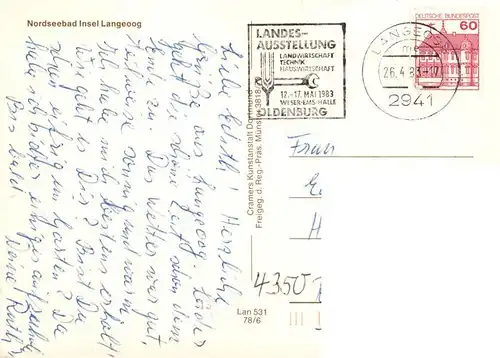 Nordseebad Insel Langeoog
Liebe Edith! Herzliche
Grüße aus Langeoog. Leider
geht die schöne Zeit schon dem
Ende zu. Das Wetter war gut,
sonnig und warm
Ich habe mich bestens erholt.
Wie geht es Dir? Bist Du
im Garten? Da
Bis bald. Deine Ruth
Cramers Kunstanstalt Dortmund
Freigeg. d. Reg.-Präs. Münster 3818/7
LANDES-
AUSSTELLUNG
LANDWIRTSCHAFT
TECHNIK
HAUSWIRTSCHAFT
12.-17. MAI 1983
WESER-EMS-HALLE
OLDENBURG
DEUTSCHE BUNDESPOST
60
LANGEOOG
26.4.83-17
2941
Frau
4350
Lan 531
78/6